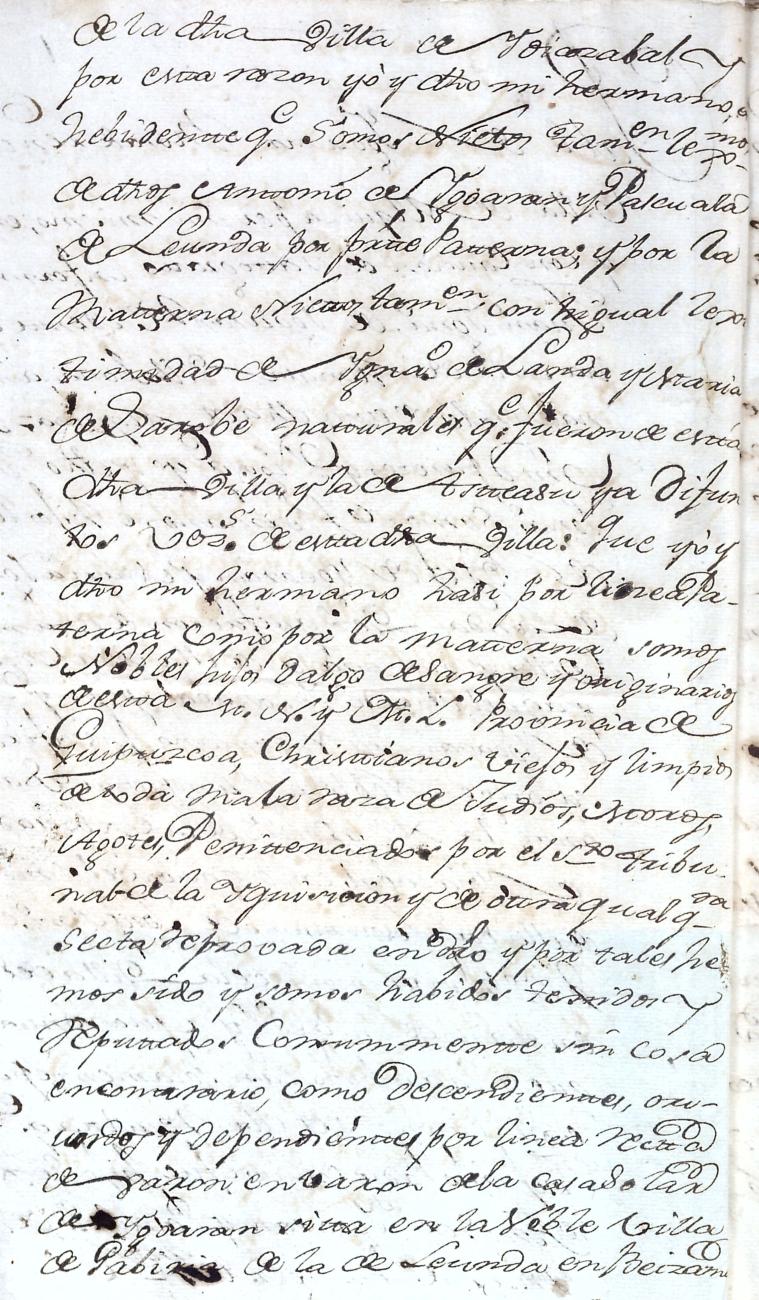 de la dha Villa de Ydiazabal Y
por esta razon yò y dho mi hermano, e
hebidente q.e Somos Nietos tam.en lex.mos
de dhos Antonio de Ygoaran y Pascuala
de Leunda por partte Patterna; y por la
Matterna Niettos tam.en con higual lexi
timidad de Ygna.o de Landa y Maria
de Zarobe natturales q.e fueron de estta
dha Villa y la de Astteasu ya Difun
tos Vez.s de estta dha Villa: Que yò y
dho mi hermano hasi por linea Pa-
terna como por la matterna somos
Nobles hijos dalgo de Sangre y originarios
de esta M. N. y M. L. Provincia de
Guipuzcoa, Christtianos viejos y limpios
de toda mala raza de Judios, Moros,
Agotes, Penittenciados por el S.to tribu-
nal de la Ynquisicion y de otura qualq.ra
Secta reprovada en dro y por tales he
mos sido y somos habidos tenidos Y
Reputtados Comunmentte sin cosa
en conttrario, como Descendienttes, ori-
undos y dependienttes por linea Rectta
de varon en varon de la casa solar
de Ygoaran sitta en la Noble Villa
de Gabiria de la de Leunda en Beizama